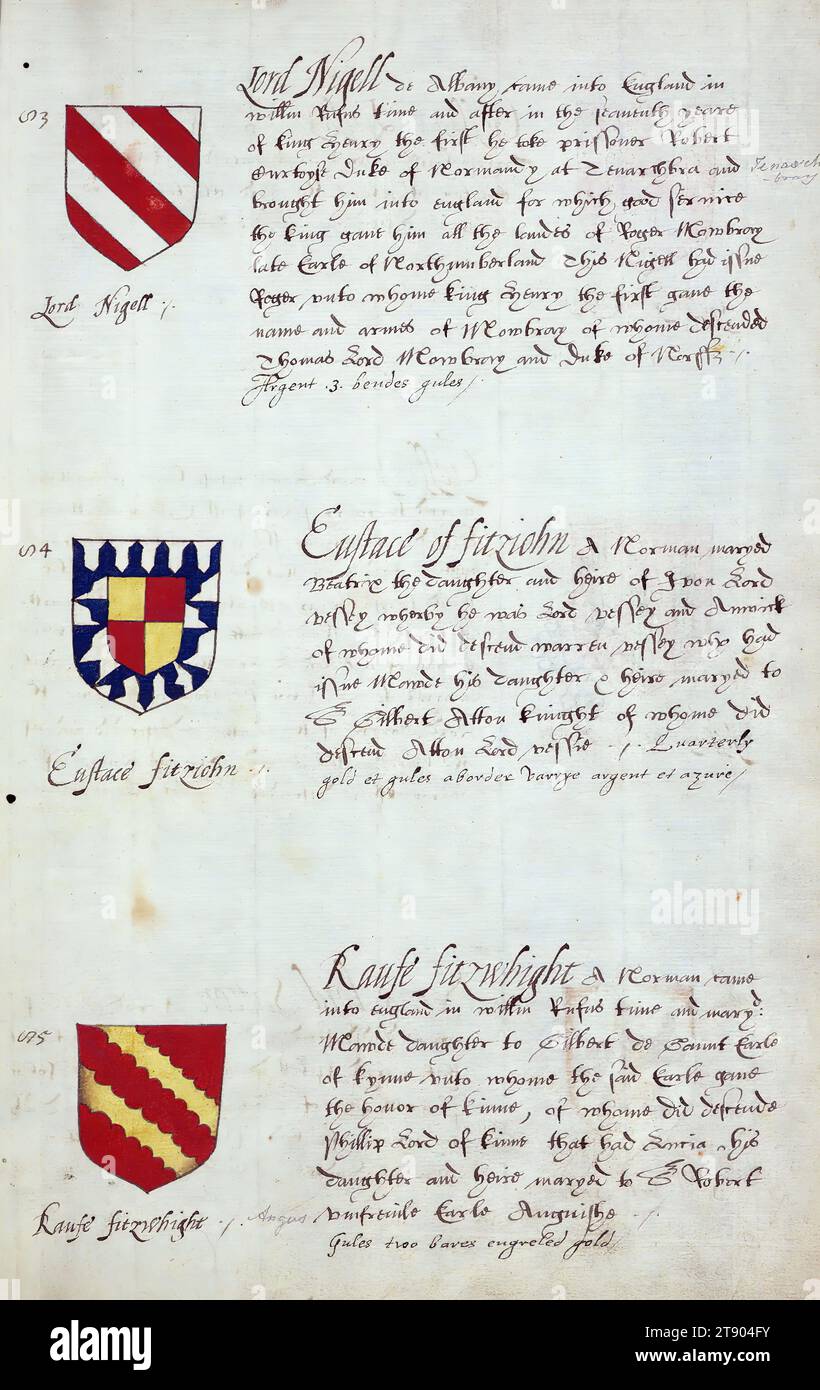 53
Lord Nigell de Albany came into England in
willm Rufus time and after in the seaventh yeare
of king Henry the first he toke prissoner Robert
Curtoyse Duke of Normandy at Tenarchbra and
Tenarch
bray
brought him into england for which good service
the king gave him all the landes of Roger Mowbray
late Earle of Northumberland This Nigell had issue
Roger unto whome king Henry the first gave the
name and armes of Mowbray of whome descended
Thomas Lord Mowbray and Duke of Norff
Argent .3. bendes gules
Lord Nigell
54
Eustace of fitziohn A Norman maryed
Beatrix the daughter and heire of Ivon Lord
vessey wherby he was Lord vessey and Anwick
of whome did descend warren vessey who had
issue Mawde his daughter & heire maryed to
Sr Gilbert Atton knight of whome did
descend Atton Lord vessie Quarterly
gold et gules a border varrye argent et azure
Eustace fitziohn
55
Raufe fitzwhight A Norman came
into england in willm Rufus time and maryd:
Mawde daughter to Gilbert de Gaunt Earle
of kynne unto whome the said Earle gave
the honor of kinne, of whome did descende
Phillip Lord of kinne that had Lucia his
daughter and heire maryed to Sr Robert
umfrevile Earle Anguishe
Angus
Gules two bares engreled gold
Raufe fitzwhight
alamy
Image ID: 2T904FY
www.alamy.com